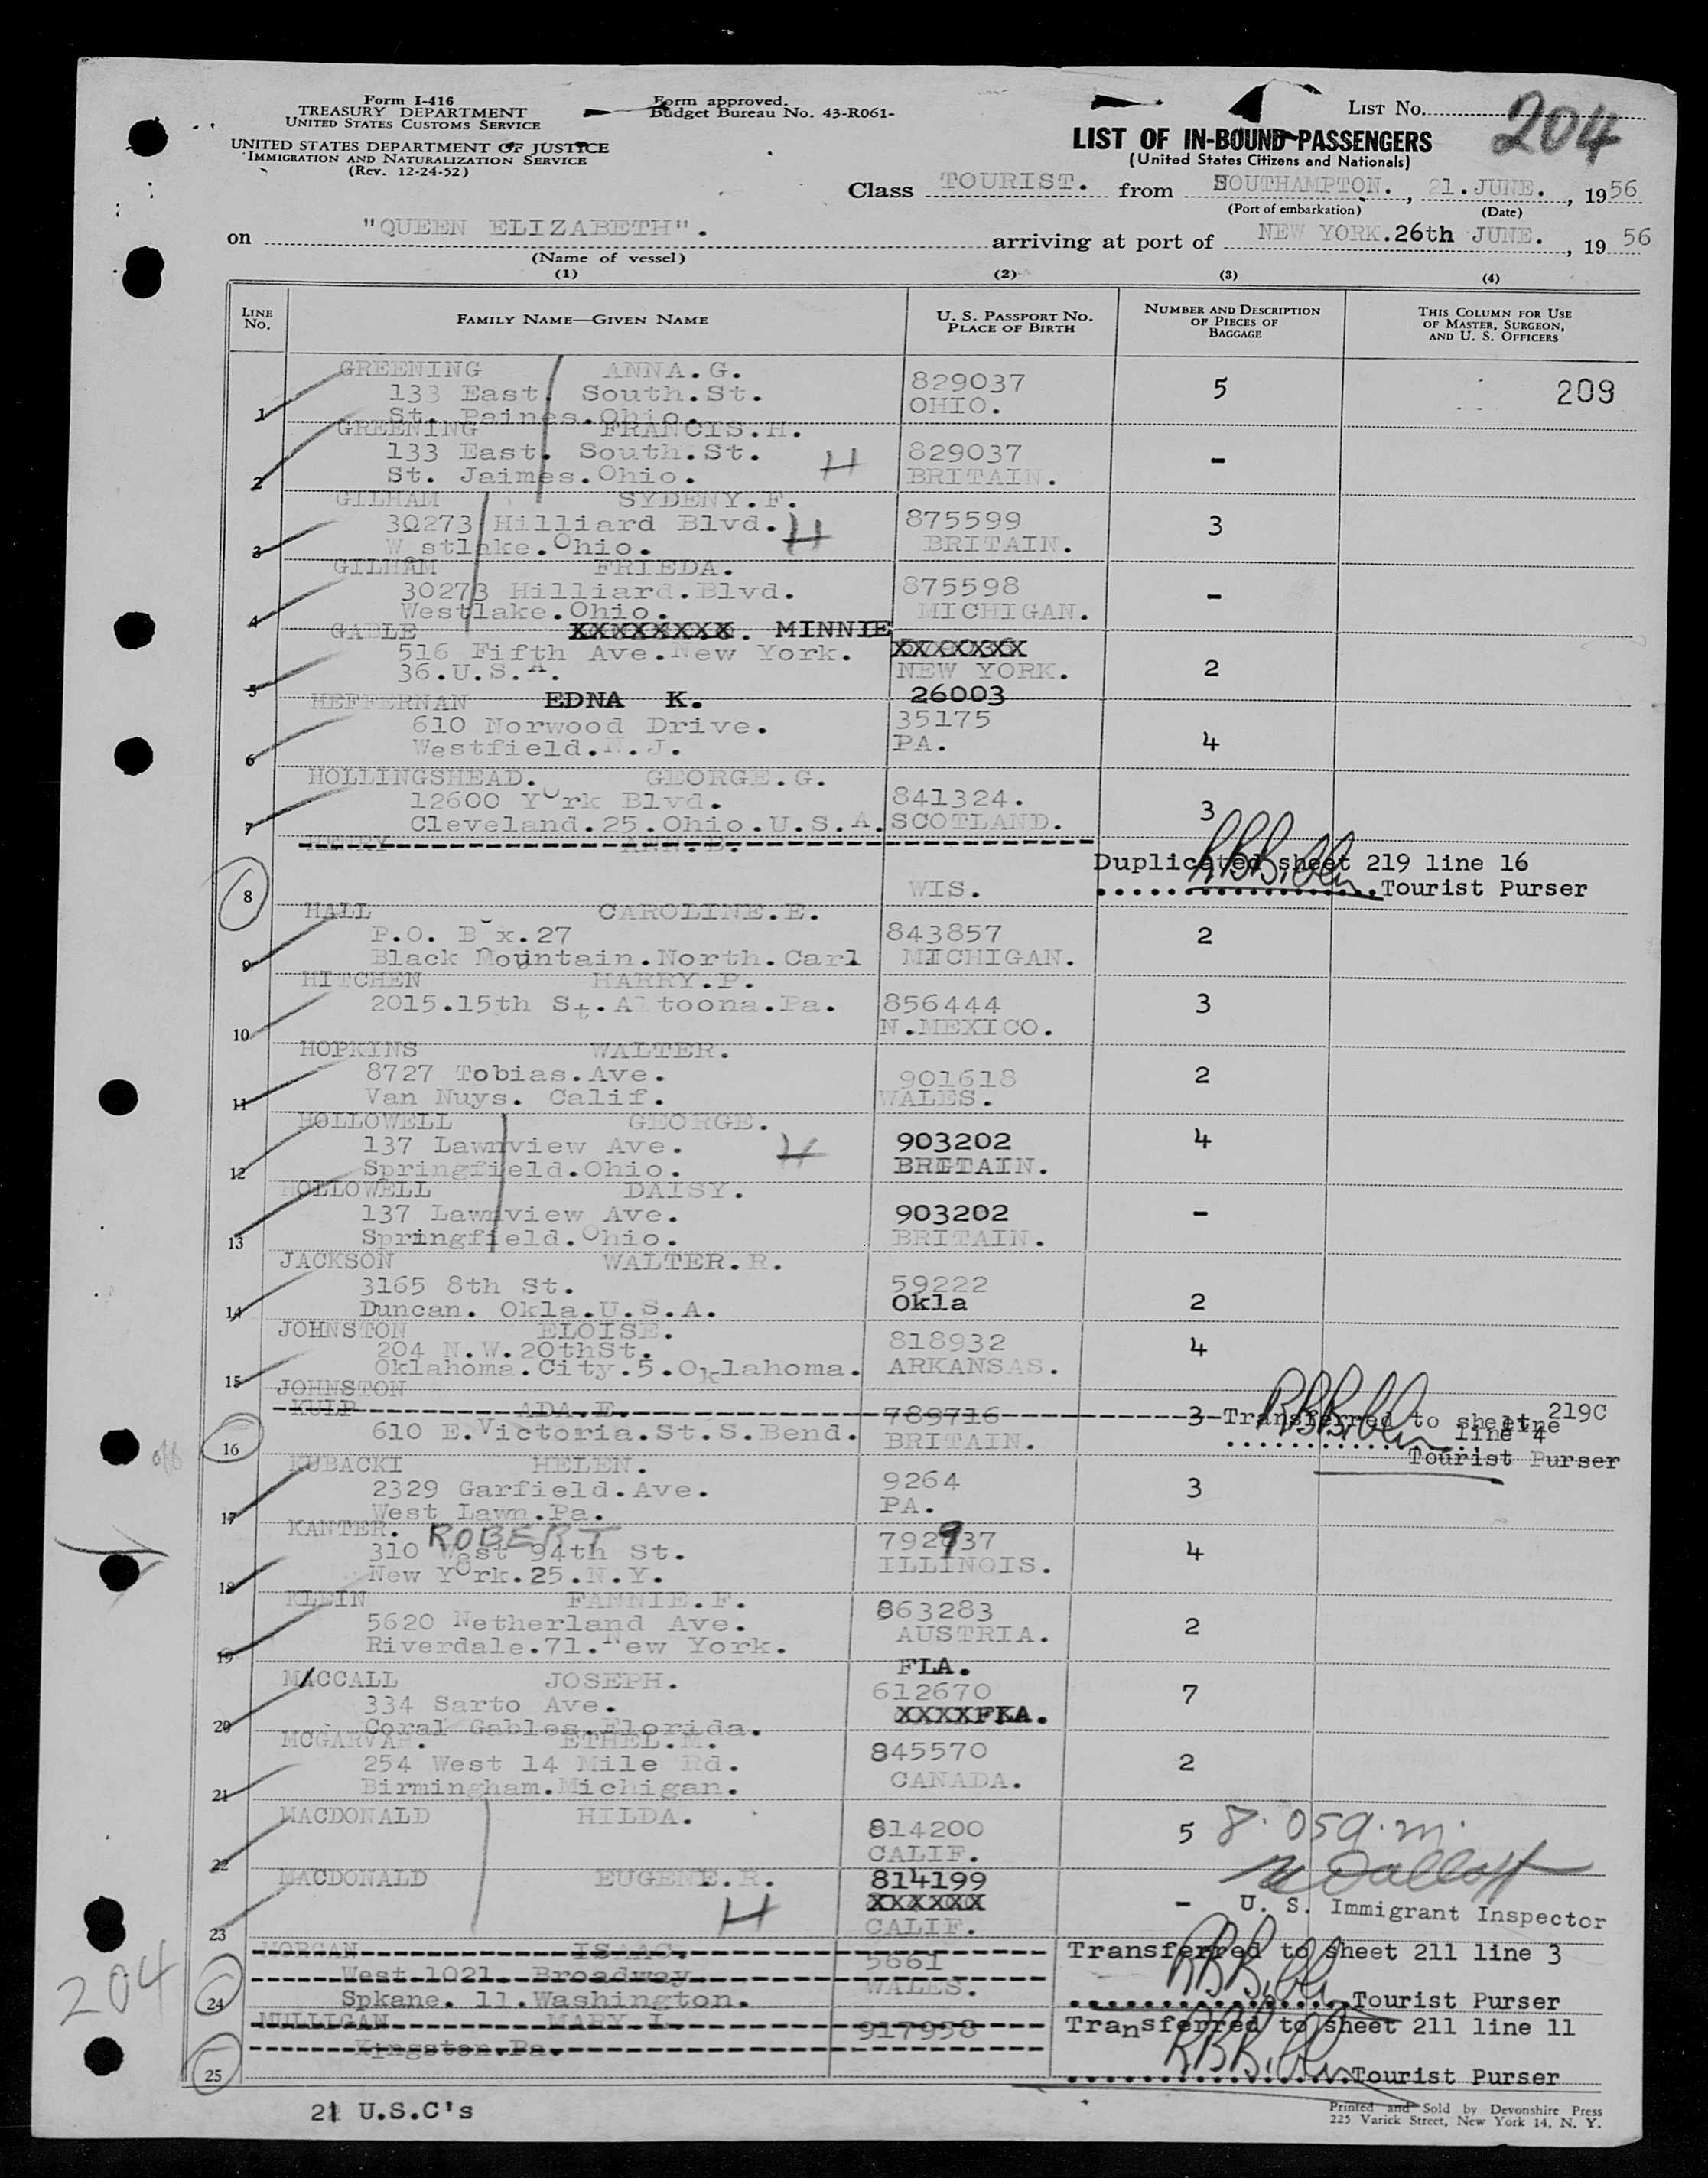 Form I-416
TREASURY DEPARTMENT
UNITED STATES CUSTOMS SERVICE
UNITED STATES DEPARTMENT OF JUSTICE
IMMIGRATION AND NATURALIZATION SERVICE
(Rev. 12-24-52)
Form approved.
Budget Bureau No. 43-R061-
LIST NO. 204
LIST OF IN-BOUND PASSENGERS
(United States Citizens and Nationals)
Class TOURIST. from SOUTHAMPTON., 21.JUNE., 1956
(Port of embarkation) (Date)
on "QUEEN ELIZABETH". arriving at port of NEW YORK.26th JUNE., 1956
(Name of vessel)
(1) (2) (3) (4)
LINE No. FAMILY NAME—GIVEN NAME U. S. PASSPORT NO. PLACE OF BIRTH NUMBER AND DESCRIPTION OF PIECES OF BAGGAGE THIS COLUMN FOR USE OF MASTER, SURGEON, AND U. S. OFFICERS
GREENING ANNA.G.
133 East. South.St. 829037 5 209
1 St. Paines.Ohio. OHIO.
GREENING FRANCIS.H.
133 East. South.St. 829037 -
2 St. Jaimes.Ohio. H BRITAIN.
GILHAM SYDENY.F.
30273 Hilliard Blvd. H 875599 3
3 Westlake.Ohio. BRITAIN.
GILHAM FRIEDA.
30273 Hilliard.Blvd. 875598 -
4 Westlake.Ohio. MICHIGAN.
GABLE XXXXXXXX. MINNIE
516 Fifth Ave.New York. XXXXXXX
5 36.U.S.A. NEW YORK. 2
26003
HEFFERNAN EDNA K.
610 Norwood Drive. 35175
6 Westfield.N.J. PA. 4
HOLLINGSHEAD. GEORGE.G.
12600 York Blvd. 841324. 3
7 Cleveland.25.Ohio.U.S.A. SCOTLAND.
HENRY ANN.D.
Duplicated sheet 219 line 16
8 WIS. Tourist Purser
HALL CAROLINE.E.
P.O. Box.27 843857 2
9 Black Mountain.North.Carl MICHIGAN.
HITCHEN HARRY.P.
2015.15th St.Altoona.Pa. 856444 3
10 N.MEXICO.
HOPKINS WALTER.
8727 Tobias.Ave. 901618 2
11 Van Nuys. Calif. WALES.
HOLLOWELL GEORGE.
137 Lawnview Ave. H 903202 4
12 Springfield.Ohio. BRITAIN.
HOLLOWELL DAISY.
137 Lawnview Ave. 903202 -
13 Springfield.Ohio. BRITAIN.
JACKSON WALTER.R.
3165 8th St. 59222
14 Duncan. Okla.U.S.A. Okla 2
JOHNSTON ELOISE.
204 N.W.20thSt. 818932 4
15 Oklahoma.City.5.Oklahoma. ARKANSAS.
JOHNSTON
KULP ADA.E. 789716 3 Transferred to sheet 219C
16 610 E.Victoria.St.S.Bend. BRITAIN. line 4
Tourist Purser
KUBACKI HELEN.
2329 Garfield.Ave. 9264 3
17 West Lawn.Pa. PA.
KANTER. ROBERT
310 West 94th St. 792937 4
18 New York.25.N.Y. ILLINOIS.
KLEIN FANNIE.F.
5620 Netherland Ave. 863283 2
19 Riverdale.71.New York. AUSTRIA.
FLA.
MACCALL JOSEPH.
334 Sarto Ave. 612670 7
20 Coral Gables.Florida. XXXXFKA.
MCGARVAH. ETHEL.M.
254 West 14 Mile Rd. 845570 2
21 Birmingham.Michigan. CANADA.
MACDONALD HILDA.
814200 5 8.05a.m.
22 CALIF.
MACDONALD EUGENE.R. 814199
H XXXXXX - U. S. Immigrant Inspector
23 CALIF.
MORGAN ISAAC. 5661 Transferred to sheet 211 line 3
West.1021. Broadway. WALES.
24 Spkane. 11.Washington. Tourist Purser
MULLIGAN MARY.L. 917958 Transferred to sheet 211 line 11
Kingston.Pa.
25 Tourist Purser
204
21 U.S.C's
Printed and Sold by Devonshire Press
225 Varick Street, New York 14, N. Y.